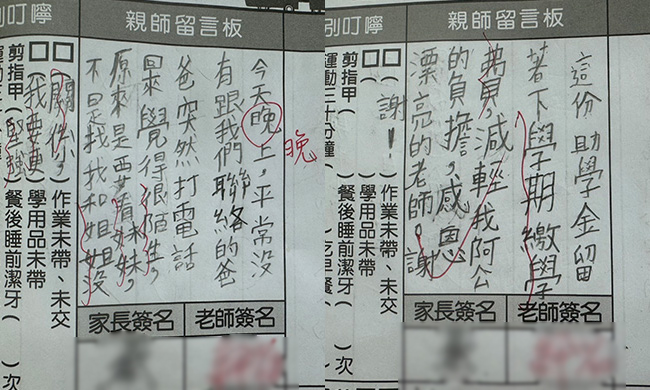 親師留言板
別叮嚀
今天晚上,平常沒
晚
有跟我們聯絡的爸
爸突然打電話
回來,覺得很陌生。
原來是要看妹妹,
不是找我和姐姐,沒
關係。
我要更
堅強
□作業未帶、未交
□學用品未帶
剪指甲
餐後睡前潔牙( )次
家長簽名
老師簽名
親師留言板
別叮嚀
這份助學金留
著下學期繳學
費,減輕我阿公
的負擔,感恩
漂亮的老師。謝
謝!
□作業未帶、未交
□學用品未帶
剪指甲(
餐後睡前潔牙( )次
運動三十分鐘(
家長簽名
老師簽名